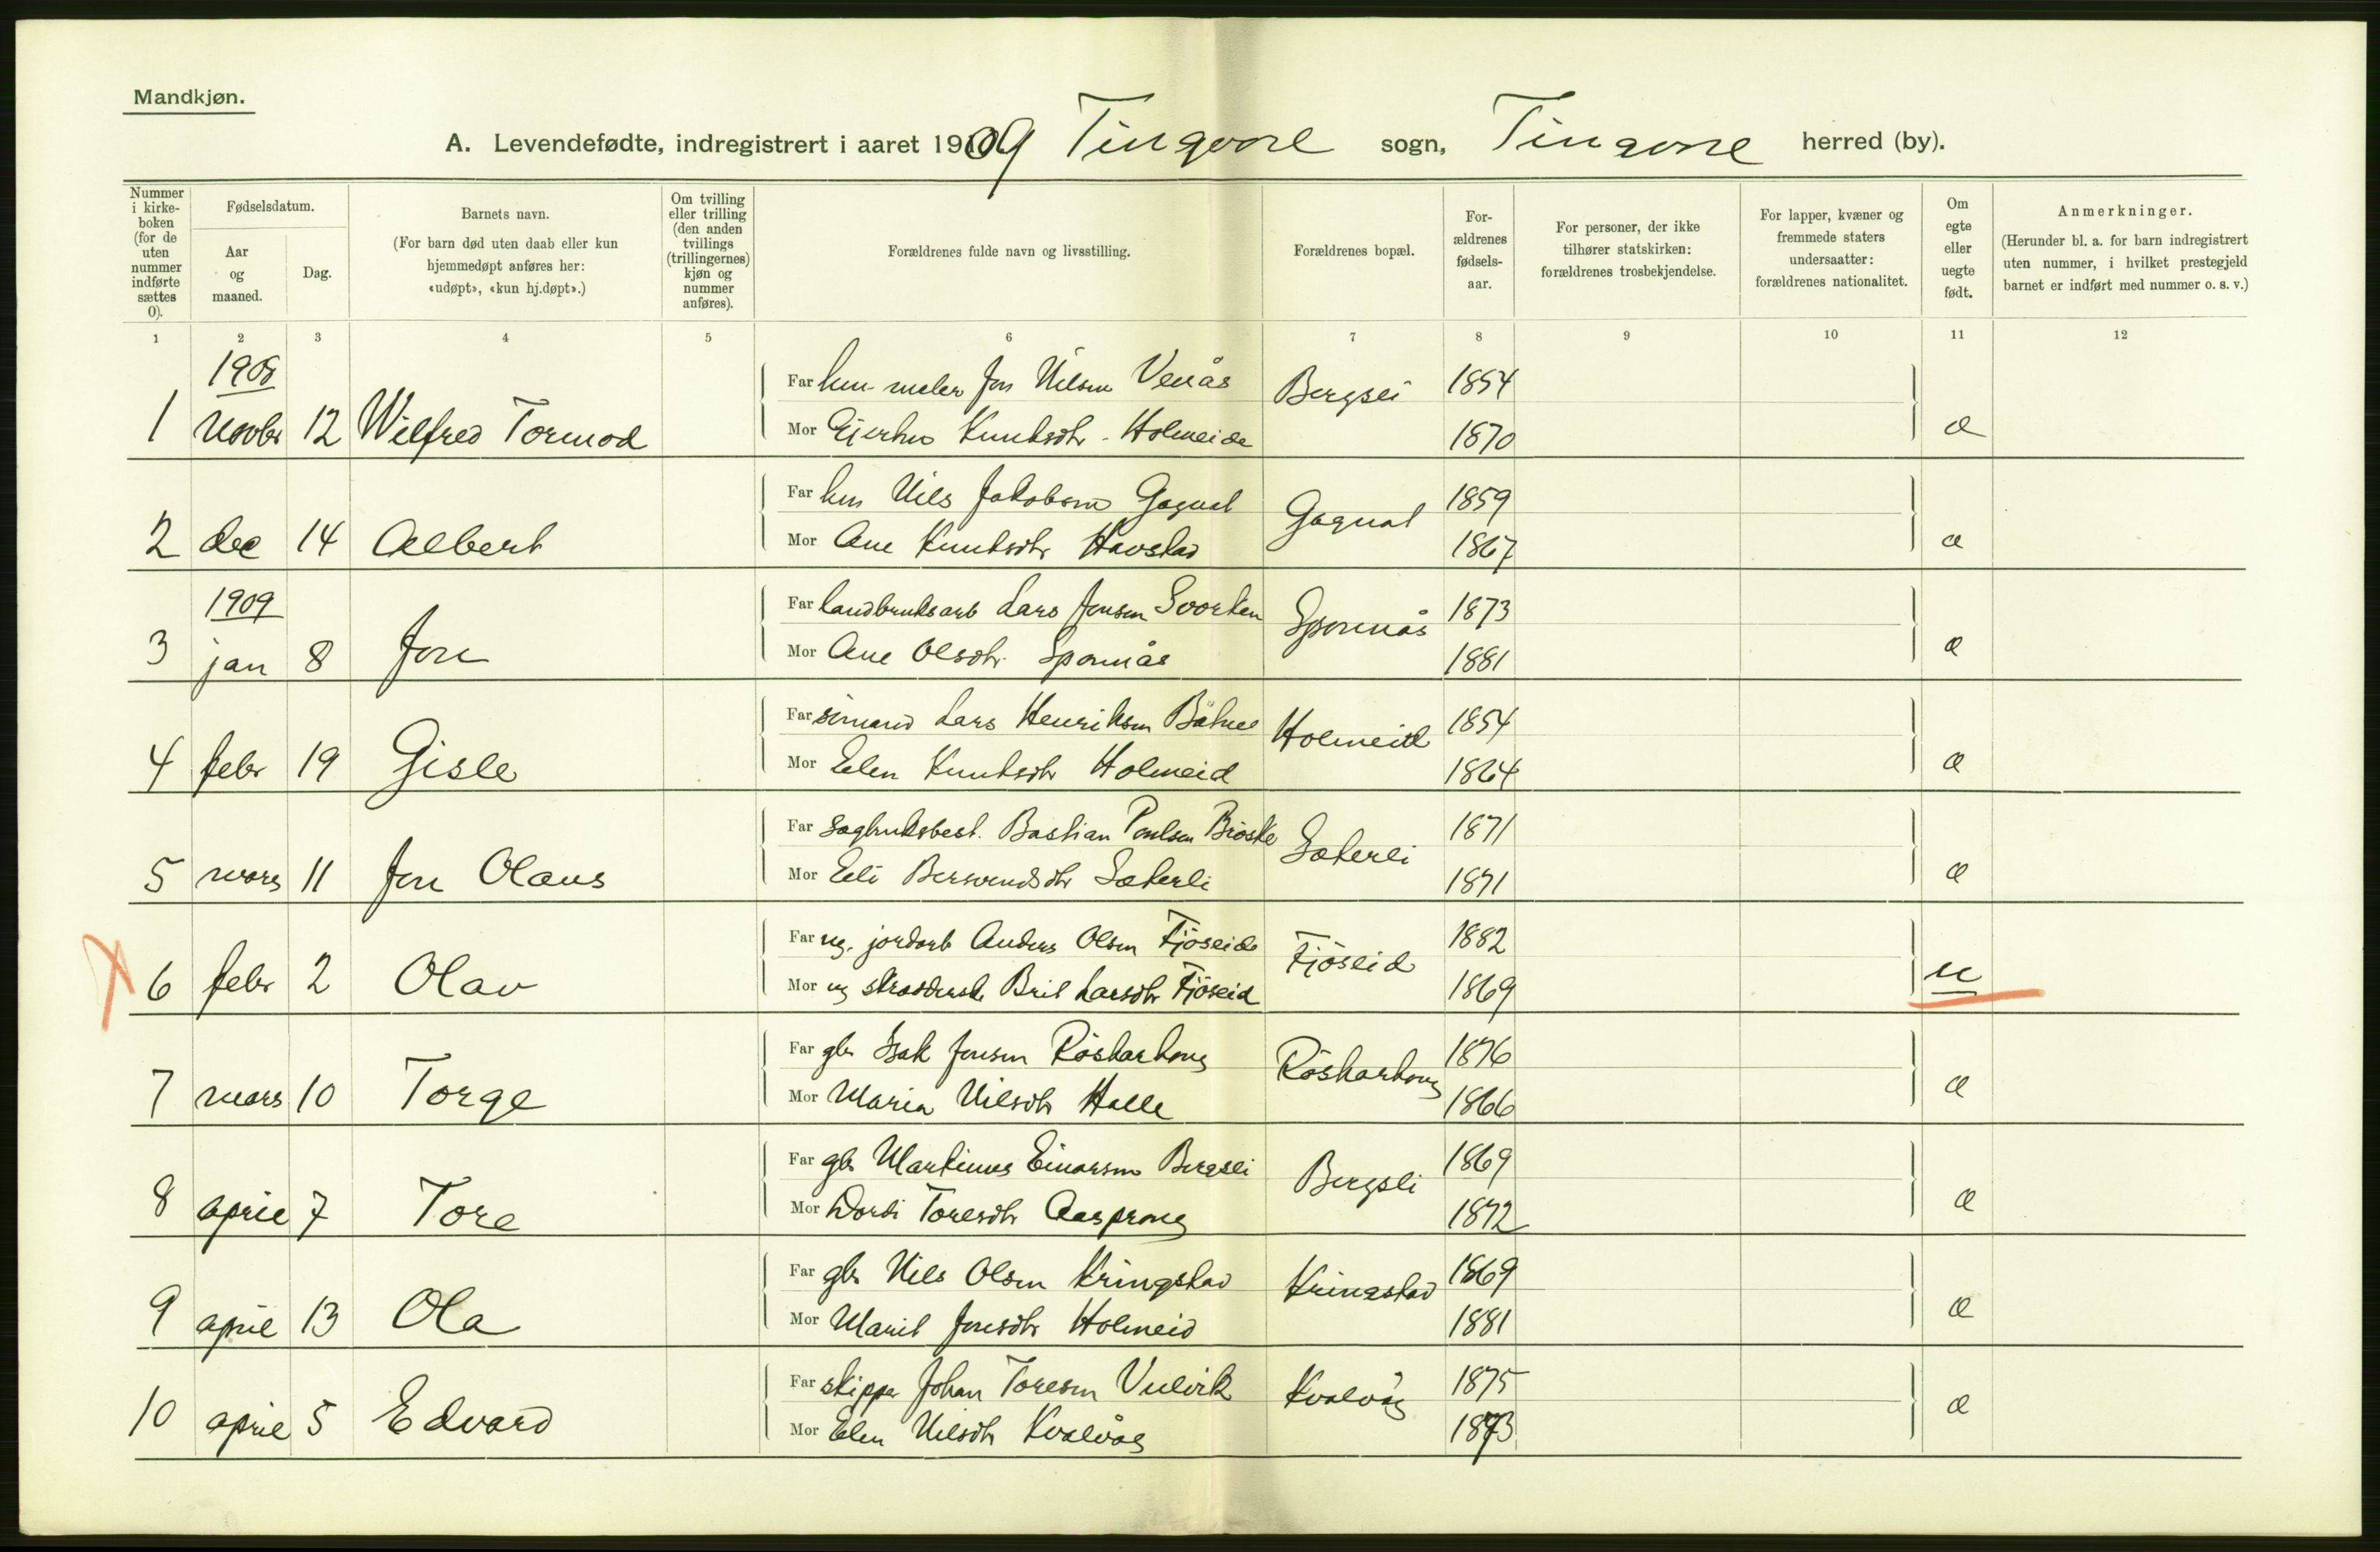 Mandkjøn.
A. Levendefødte, indregistrert i aaret 1909 Tingvoll sogn, Tingvoll herred (by).
Nummer i kirkeboken (for de uten nummer indførte sættes 0).
Fødselsdatum.
Aar og maaned.
Dag.
Barnets navn.
(For barn død uten daab eller kun hjemmedøpt anføres her: «udøpt», «kun hj.døpt».)
Om tvilling eller trilling (den anden tvillings (trillingernes) kjøn og nummer anføres).
Forældrenes fulde navn og livsstilling.
Forældrenes bopæl.
Forældrenes fødselsaar.
For personer, der ikke tilhører statskirken: forældrenes trosbekjendelse.
For lapper, kvæner og fremmede staters undersaatter: forældrenes nationalitet.
Om egte eller uegte født.
Anmerkninger.
(Herunder bl. a. for barn indregistrert uten nummer, i hvilket prestegjeld barnet er indført med nummer o. s. v.)
1 2 3 4 5 6 7 8 9 10 11 12
1908
Far hm. maler Jon Nilsen Venås Bergsli 1854
1 novbr 12 Wilfred Tormod Mor Knutsdtr. Holmeide 1870 æ
Far hm Nils Jakobsen Gagnat Gagnat 1859
2 dec 14 Albert Mor Ane Knutsdtr Havstad 1867 æ
1909
Far landbruksarb Lars Jonsen Svorken Sponnås 1873
3 jan 8 Jon Mor Ane Olsdtr. Sponnås 1881 æ
Far sömand Lars Henriksen Holmeid 1854
4 febr 19 Gisle Mor Elen Knutsdtr Holmeid 1864 æ
Far Sagbruksbest. Bastian Paulsen Bröske Sæterli 1871
5 mars 11 Jon Olaus Mor Eli Bersvendsdtr Sæterli 1871 æ
Far ug. jordarb Anders Olsen Fjöseide Fjöseid 1882
6 febr 2 Olav Mor ug skrædderske Brit Larsdtr Fjöseid 1869 u
Far gbr Isak Jonsen Röskarhaug Röskarhaug 1876
7 mars 10 Torge Mor Maria Nilsdtr Halle 1866 æ
Far gbr Martinus Einarsen Bergsli Bergsli 1869
8 april 7 Tore Mor Dordi Toresdtr Aasprong 1872 æ
Far gbr Nils Olsen Kringstad Kringstad 1869
9 april 13 Ola Mor Marit Jonsdtr Holmeid 1881 æ
Far skipper Johan Toresen Vulvik Kvalvåg 1875
10 april 5 Edvard Mor Elen Nilsdtr Kvalvåg 1873 æ